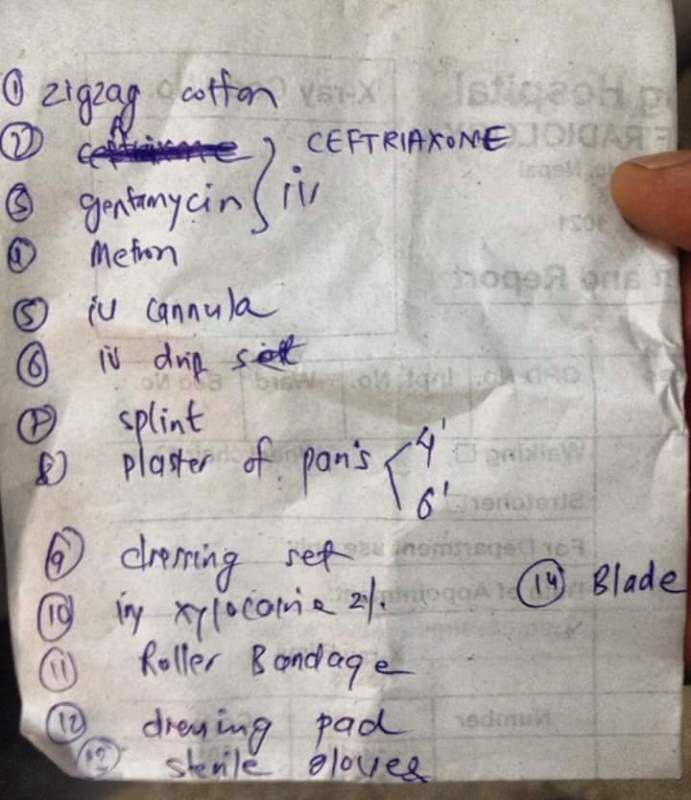 ① zigzag cotton
② ceftriaxone } CEFTRIAXONE
③ gentamycin } iv
④ Metron
⑤ iv cannula
⑥ iv drip set
⑦ splint
⑧ plaster of paris < 4' 6'
⑨ dressing set
⑩ inj xylocaine 2%.
⑪ Roller Bandage
⑫ dressing pad
⑬ sterile gloves
⑭ Blade
X-ray
Hospital
RADIOLOGY
Nepal
1021
and Report
OPD No.
Inpt. No.
Ward
Bed No
Walking
Wheelchair
Stretcher
For Department use only
of Appointment
Number